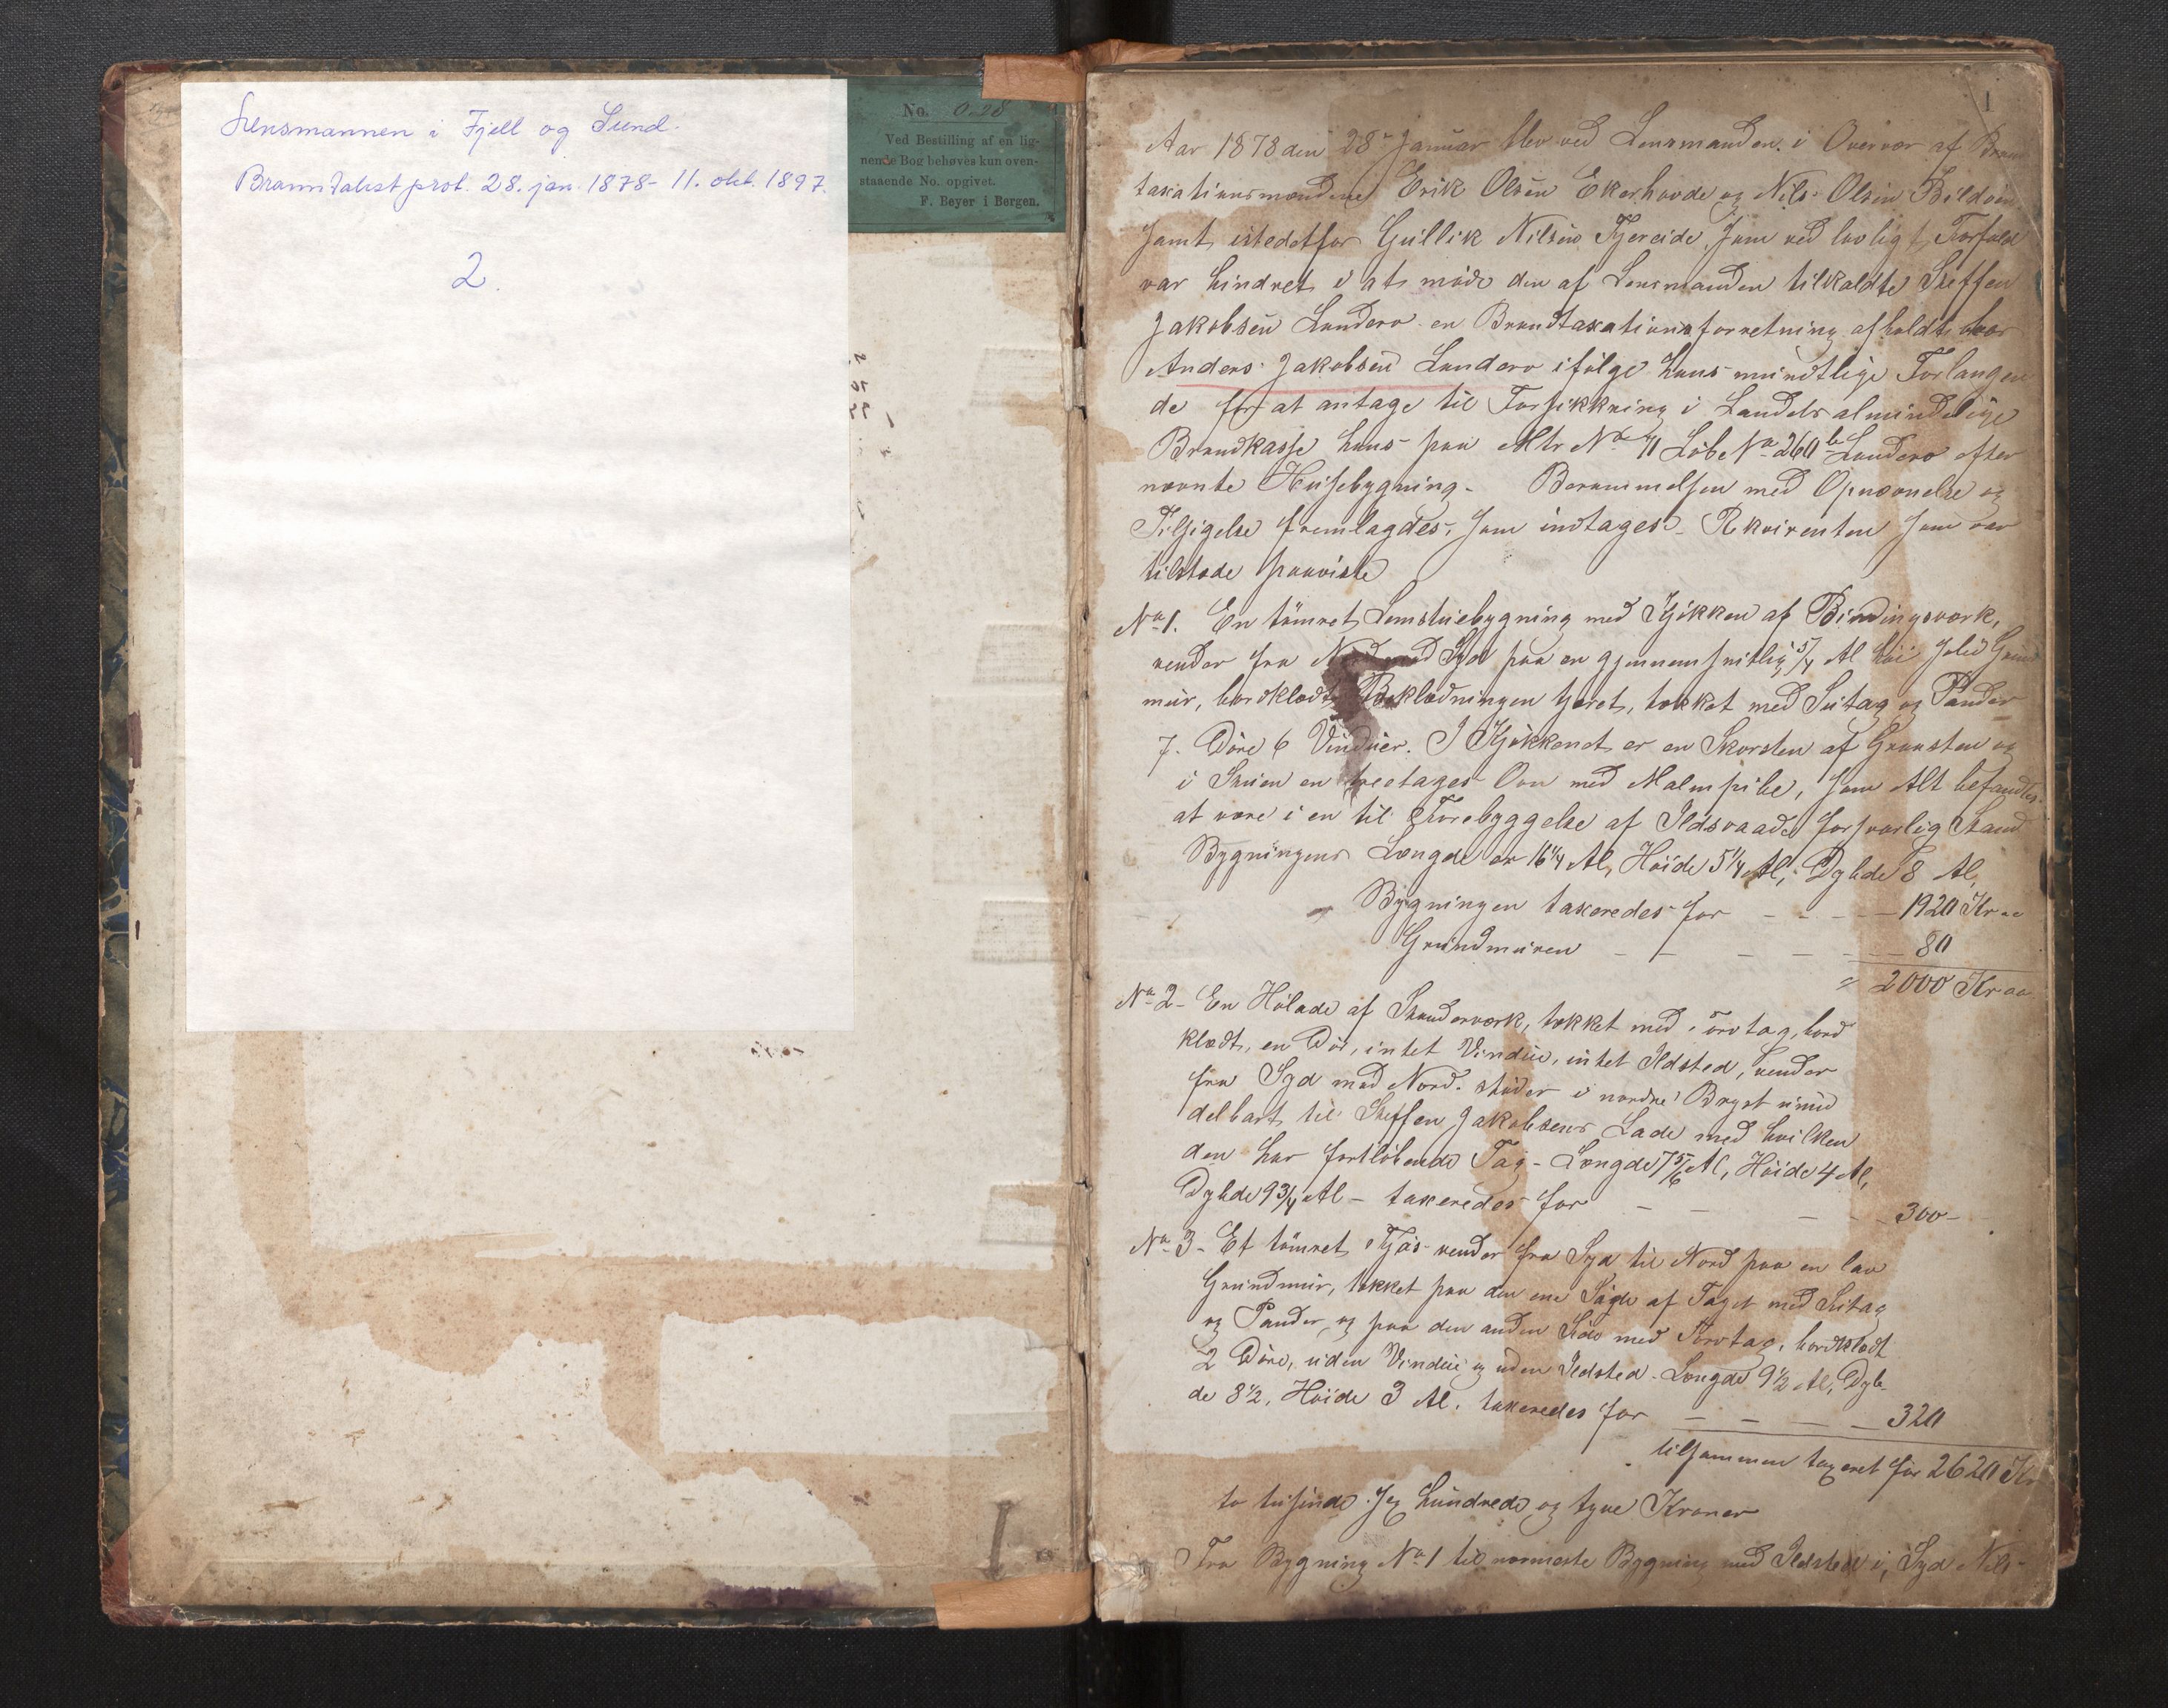 Lensmannen i Fjell og Sund.
Branntakstprot. 28. jan. 1878 - 11. okt. 1897.
2.
No. 0.28
Ved Bestilling af en lig-
nende Bog behøves kun oven-
staaende No. opgivet.
F. Beyer i Bergen.
1
Aar 1878 den 28de Januar blev ved Lensmanden i Overvær af Brand
taxationsmændene Erik Olsen Ekerhovde og Nils Olsen Bildøen
samt istedetfor Gullik Nilsen Fjereide, som ved lovligt Forfald
var hindret i at møde den af Lensmanden tilkaldte Steffen
Jakobsen Landero en Brandtaxationsforretning afholdt hos
Anders Jakobsen Landero ifølge hans mundtlige Forlangen
de for at antage til Forsikkring i Landets almindelige
Brandkasse hans paa Mtr No 11 Løbe No 260 b Landero efter
nævnte Husebygning - Berammelsen med Opnævnelse og
Tilsigelse fremlagdes, som indtages. Rekvirenten som var
tilstæde paaviste
No 1. En tømret Lemstuebygning med Kjøkken af Bindingsværk,
vender fra Nord mod Syd paa en gjennemsnitlig 5/4 Al høi solid Grund
mur, bordklædt, Beklædningen tjæret, tækket med Sutag og Pander
7. Døre 6 Vinduer. I Kjøkkenet er en Skorsten af Graasten og
i Stuen en treetages Ovn med Malmpibe, som Alt befandtes
at være i en til Forebyggelse af Ildsvaade forsvarlig Stand
Bygningens Længde er 16 1/4 Al, Høide 5 1/4 Al, Dybde 8 Al,
Bygningen taxeredes for - - - - 1920 Kr
Grundmuren - - - - - 80
2000 Kr
No 2 - En Hølade af Stenderværk, tækket med Torvtag, bord
klædt, en Dør, intet Vindue, intet Ildsted, vender
fra Syd mod Nord. støder i nordre Bryst umid
delbart til Steffen Jakobsens Lade med hvilken
den har fortløbende Tag - Længde 7 5/6 Al, Høide 4 Al,
Dybde 9 3/4 Al - taxeredes for - - - - 300 -
No 3 - Et tømret Fjøs vender fra Syd til Nord paa en lav
Grundmur, tækket paa den ene Side af Taget med Sutag
og Pander og paa den anden Side med Torvtag, bordklædt
2 Døre, uden Vindue og uden Ildsted. Længde 9 1/2 Al, Dyb
de 8 1/2, Høide 3 Al. taxeredes for - - - - 320
tilsammen taxeret for 2620 Kr
to tusinde sex hundrede og tyve Kroner
Fra Bygning No 1 til nærmeste Bygning med Ildsted i Syd Nils